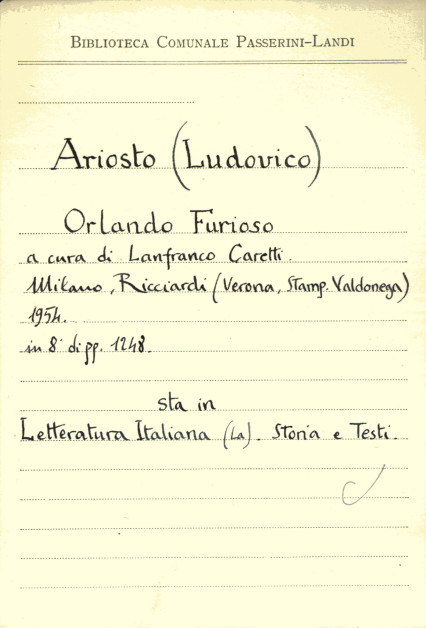 BIBLIOTECA COMUNALE PASSERINI-LANDI
Ariosto (Ludovico)
Orlando Furioso
a cura di Lanfranco Caretti.
Milano, Ricciardi (Verona, Stamp. Valdonega)
1954.
in 8° di pp. 1248.
sta in
Letteratura Italiana (La). Storia e Testi.